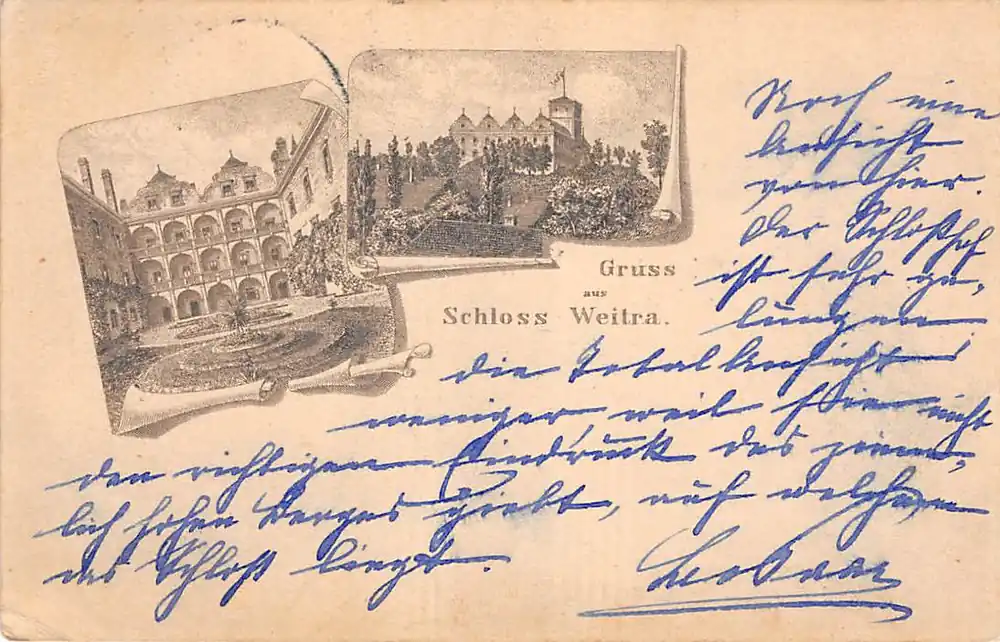 Gruss
aus
Schloss Weitra.
Noch eine
Ansicht
von hier.
Der Schloßhof
ist sehr ge,
lungen
die Totalansicht
weniger weil sie nicht
den richtigen Eindruck des ziem,
lich hohen Berges giebt, auf welchem
das Schloß liegt.